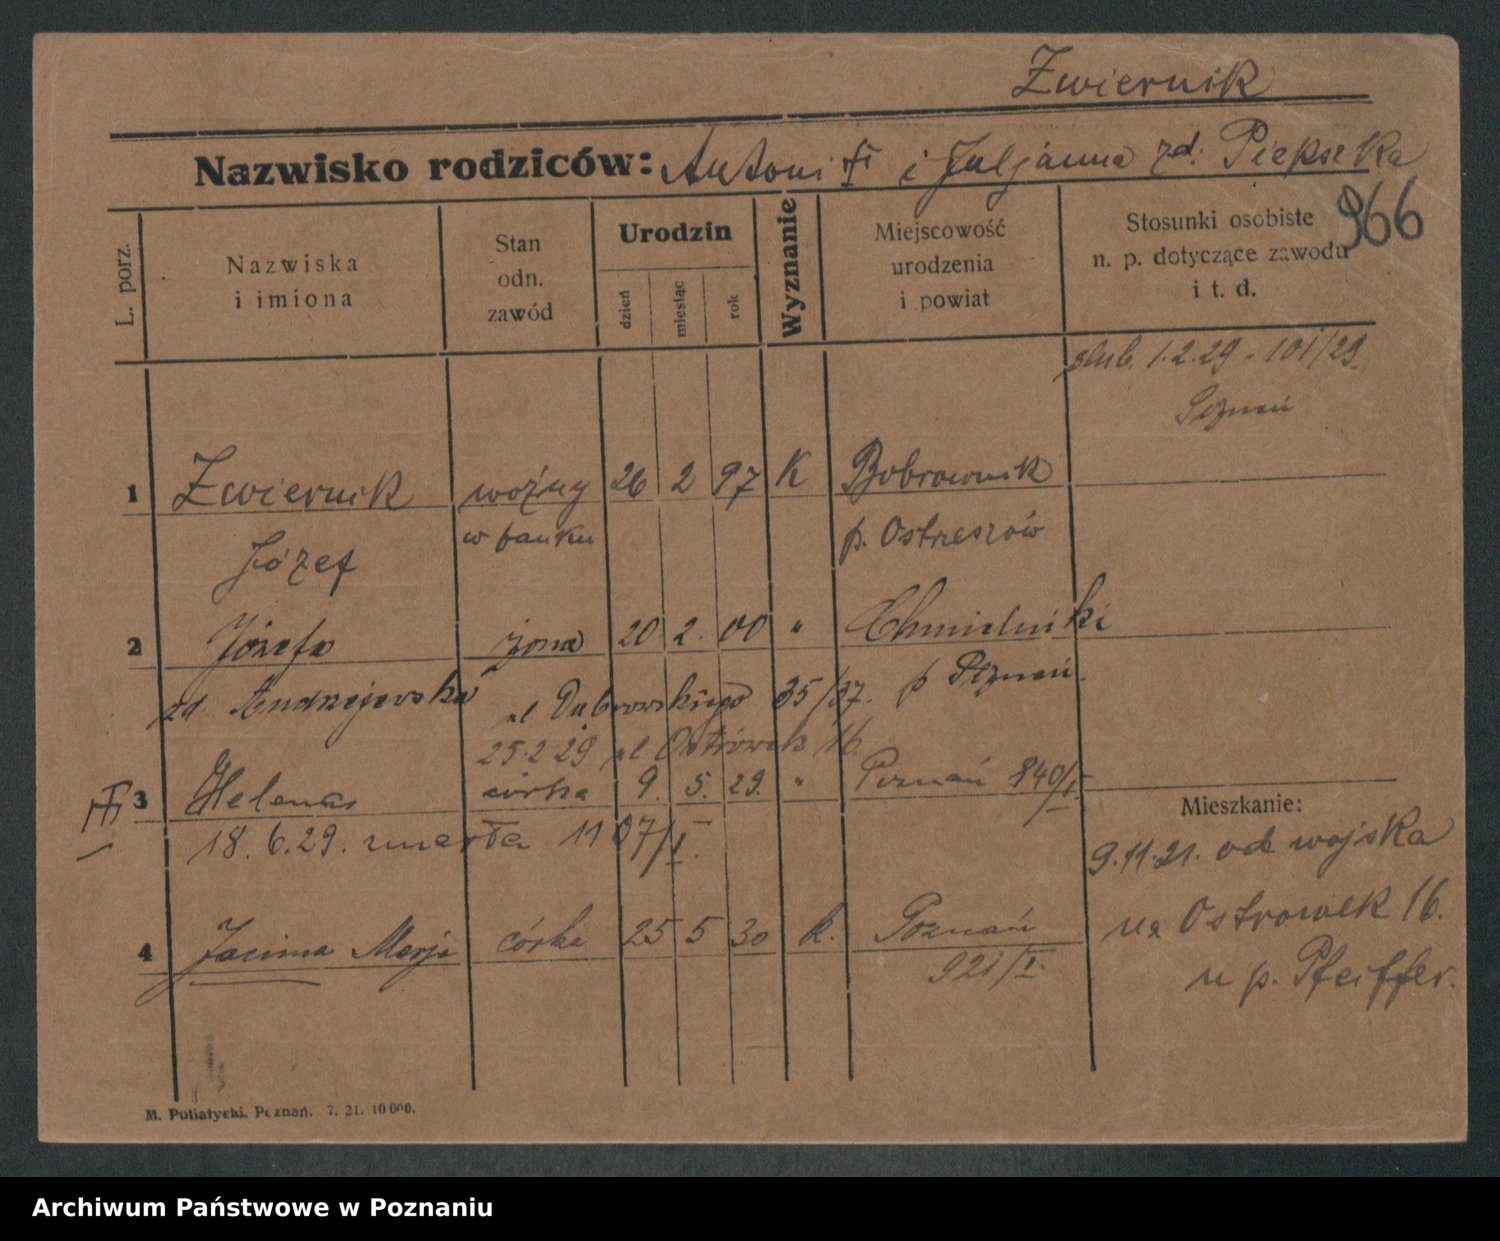 Zwiernik
Nazwisko rodziców: Antoni i Juljanna zd. Piepszka
966
L. porz.
Nazwiska
i imiona
Stan
odn.
zawód
Urodzin
dzień
miesiąc
rok
Wyznanie
Miejscowość
urodzenia
i powiat
Stosunki osobiste
n. p. dotyczące zawodu
i t. d.
ślub. 1.2.29 - 101/29.
Poznań
1 Zwiernik woźny 26 2 97 K Bobrownik
Józef w banku p. Ostrzeszów
2 Józefa żona 20 2. 00 " Chmielniki
zd. Andrzejewska ul. Dąbrowskiego 35/37. p Poznań.
25.2 29 ul Ostrówek 16
3 Helena córka 9. 5. 29. " Poznań 840/I.
18. 6. 29. zmarła 1107/I.
Mieszkanie:
9.11.21. od wojska
na Ostrowek 16.
u p. Pfeiffer.
4 Janina Marja córka 25 5 30 k. Poznań
921/I.
M. Putiatycki. Poznań. 7. 21. 10 000.
Archiwum Państwowe w Poznaniu